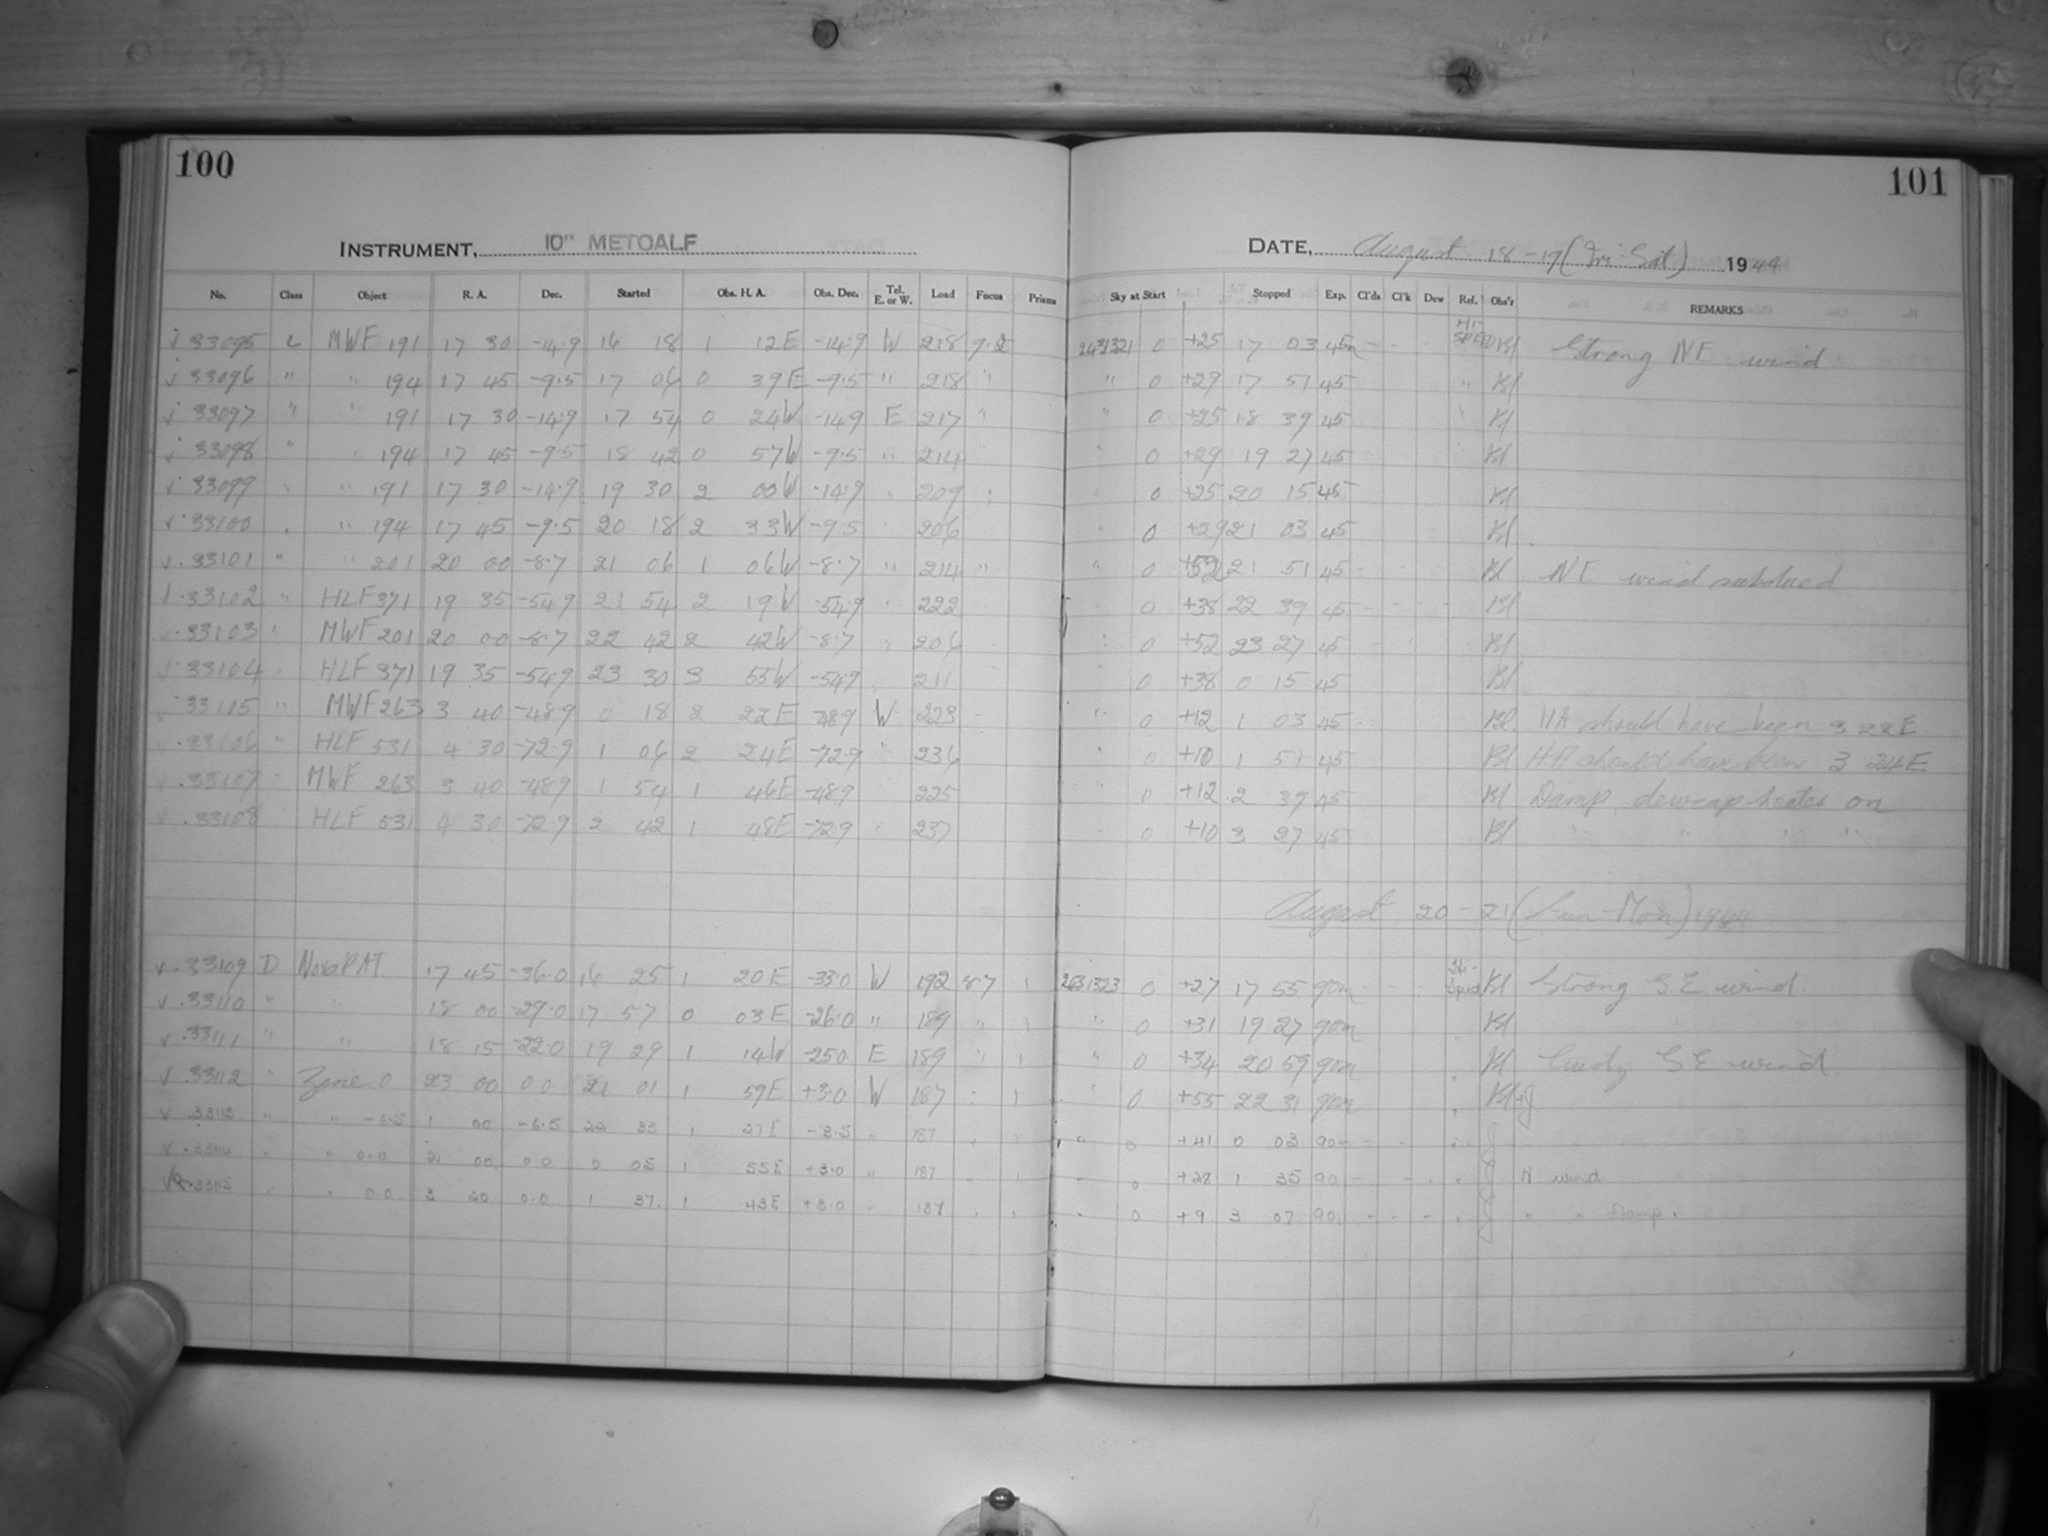 100
101
INSTRUMENT, 10" METCALF
DATE, August 18-19 (Fri-Sat) 1944
No. Class Object R. A. Dec. Started Obs. H. A. Obs. Dec. Tel. E. or W. Load Focus Prisms Sky at Start Stopped Exp. Cl'ds Cl'k Dew Ref. Obs'r REMARKS
33095 L MWF 191 17 30 -14.9 16 18 1 12E -14.9 W 218 9.2 2431321 0 +25 17 03 45m - - Hi-SPEED Bl Strong NE wind
33096 " " 194 17 45 -9.5 17 06 0 39E -9.5 " 218 " " 0 +29 17 51 45 " Bl
33097 " " 191 17 30 -14.9 17 54 0 24W -14.9 E 217 " " 0 +25 18 39 45 " Bl
33098 " " 194 17 45 -9.5 18 42 0 57W -9.5 " 214 " 0 +29 19 27 45 Bl
33099 " " 191 17 30 -14.9 19 30 2 00W -14.9 " 209 " " 0 +25 20 15 45 Bl
33100 " " 194 17 45 -9.5 20 18 2 33W -9.5 " 206 " 0 +29 21 03 45 Bl
33101 " " 201 20 00 -8.7 21 06 1 06W -8.7 " 214 " " 0 +52 21 51 45 Bl NE wind subdued
33102 " HLF 371 19 35 -54.9 21 54 2 19W -54.9 " 222 " 0 +38 22 39 45 Bl
33103 " MWF 201 20 00 -8.7 22 42 2 42W -8.7 " 206 " 0 +52 23 27 45 Bl
33104 " HLF 371 19 35 -54.9 23 30 3 55W -54.9 211 " 0 +38 0 15 45 Bl
33105 " MWF 263 3 40 -48.9 0 18 2 22E -48.9 W 223 " 0 +12 1 03 45 Bl HA should have been 3 22E
33106 " HLF 531 4 30 -72.9 1 06 2 24E -72.9 " 236 " 0 +10 1 51 45 Bl HA should have been 3 24E
33107 " MWF 263 3 40 -48.9 1 54 1 46E -48.9 225 " 0 +12 2 39 45 Bl Damp, dewcap heater on
33108 HLF 531 4 30 -72.9 2 42 1 48E -72.9 " 237 " 0 +10 3 27 45 Bl " " " "
August 20-21 (Sun-Mon) 1944
33109 D Nova PAT 17 45 -36.0 16 25 1 20E -33.0 W 192 8.7 1 2631323 0 +27 17 55 90m - - Hi-Speed Bl Strong S.E wind.
33110 " " 18 00 -29.0 17 57 0 03E -26.0 " 189 " 1 " 0 +31 19 27 90m Bl
33111 " " 18 15 -22.0 19 29 1 14W -25.0 E 189 " 1 " 0 +34 20 59 90m Bl Gusty S E wind.
33112 " Zone 0 23 00 0 0 21 01 1 59E +3.0 W 187 : 1 " 0 +55 22 31 90m " Bl+J
33113 " " -6.5 1 00 -6.5 22 33 1 27E -3.5 " 187 " 1 " 0 +41 0 03 90m - - " J
33114 " " 0.0 2 00 0.0 0 05 1 55E +3.0 " 187 " 1 " 0 +28 1 35 90 - - - " J N wind
33115 " " 0.0 3 20 0.0 1 37 1 43E +3.0 " 187 " 1 " 0 +9 3 07 90 - - - " J " " Damp.